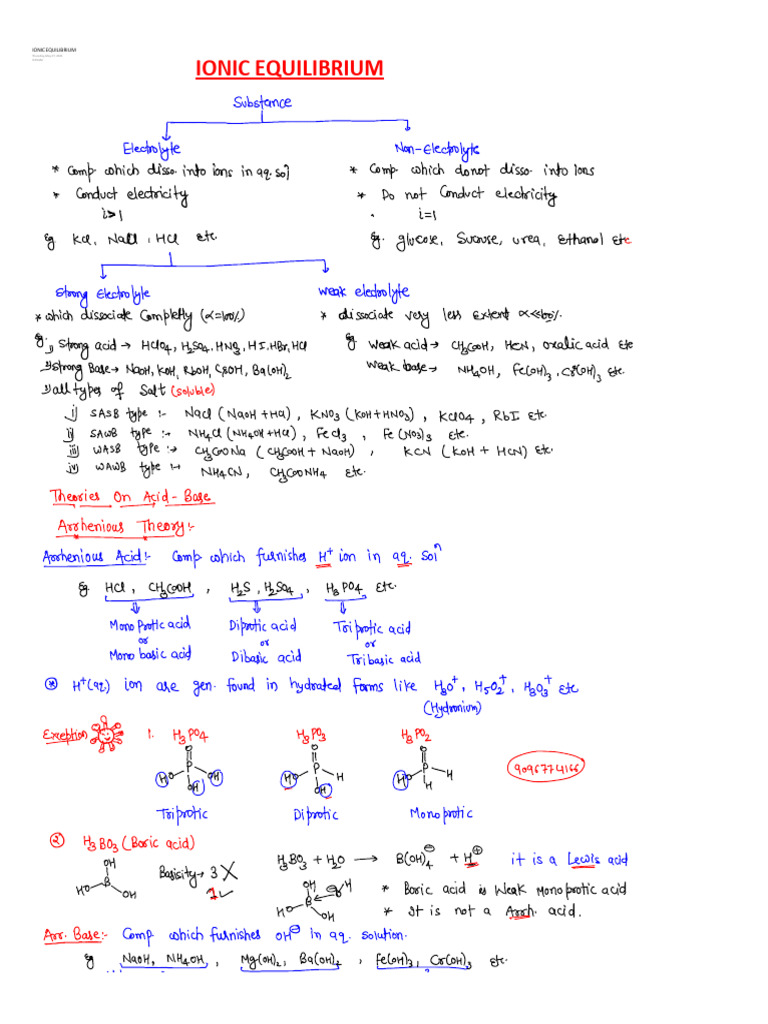 IONIC EQUILIBRIUM
IONIC EQUILIBRIUM
Substance
Electrolyte
Non-Electrolyte
* Comp which disso. into ions in aq. sol
* Comp which donot disso. into Ions
* Conduct electricity
* Do not Conduct electricity
i>1
i=1
Eg KCl, NaCl, HCl Etc.
Eg. glucose, Sucrose, urea, Ethanol Etc
Strong Electrolyte
Weak electrolyte
* which dissociate Completly (α=100%)
* dissociate very less Extent α<<100%.
Eg. i) Strong acid → HClO4, H2SO4, HNO3, HI, HBr, HCl
Eg weak acid → CH3COOH, HCN, oxalic acid Etc
ii) Strong Base → NaOH, KOH, RbOH, CsOH, Ba(OH)2
weak base → NH4OH, Fe(OH)3, Cr(OH)3 Etc
iii) all types of Salt (soluble)
i) SASB type :- NaCl (NaOH+HCl), KNO3 (KOH+HNO3), KClO4, RbI Etc.
ii) SAWB type :- NH4Cl (NH4OH+HCl), FeCl3, Fe(NO3)3 Etc.
iii) WASB type :→ CH3COONa (CH3COOH + NaOH), KCN (KOH + HCN) Etc.
iv) WAWB type :→ NH4CN, CH3COONH4 Etc.
Theories On Acid-Base
Arrhenious Theory:-
Arrhenious Acid:- Comp which furnishes H+ ion in aq. Soln
Eg HCl, CH3COOH, H2S, H2SO4, H3PO4 Etc.
Mono protic acid
Diprotic acid
Triprotic acid
or
or
or
Mono basic acid
Dibasic acid
Tribasic acid
* H+(aq) ion are gen. found in hydrated forms like H3O+, H5O2+, H9O3+ Etc
(Hydronium)
Exception 1. H3PO4 H3PO3 H3PO2
O O O
HO P OH HO P H HO P H
OH OH H
9096774166
Triprotic Diprotic Monoprotic
2 H3BO3 (Boric acid)
H3BO3 + H2O → B(OH)4⊖ + H⊕ it is a Lewis acid
OH
HO B OH
Basisity → 3 X
1 ✓
OH O H
HO B H
OH
* Boric acid is Weak Monoprotic acid
* It is not a Arrh. acid.
Arr. Base:- Comp which furnishes OH⊖ in aq. solution.
Eg NaOH, NH4OH, Mg(OH)2, Ba(OH)2, Fe(OH)3, Cr(OH)3 etc.